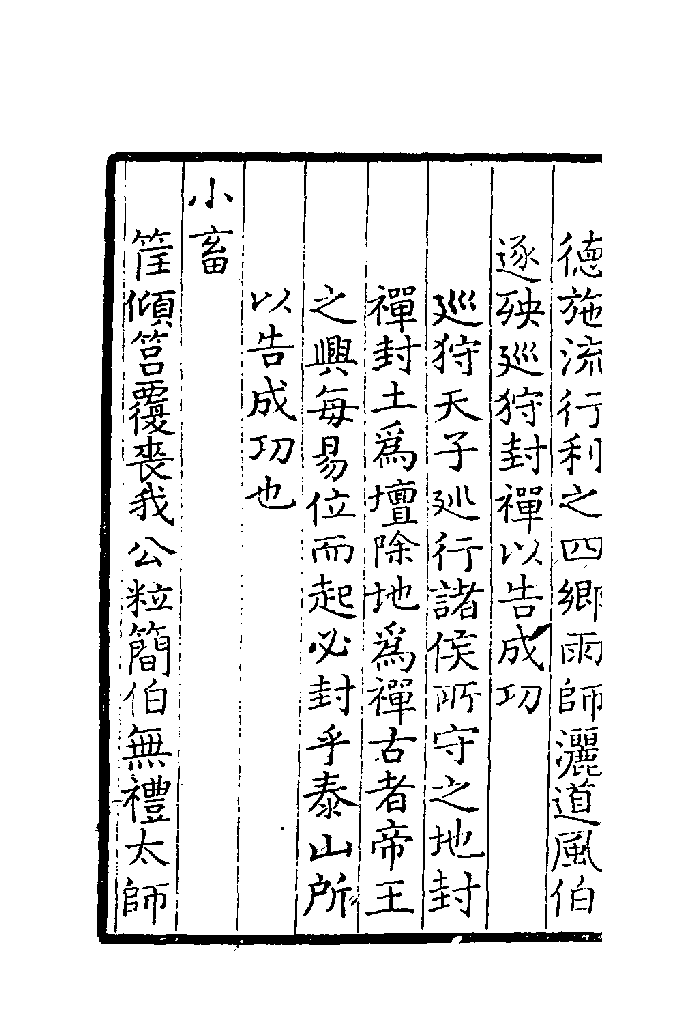 德施流行利之四鄉雨師灑道風伯
逐殃巡狩封禪以告成功
巡狩天子巡行諸侯所守之地封
禪封土為壇除地為禪古者帝王
之興每易位而起必封乎泰山所
以告成功也
小畜
筐傾筥覆喪我公粒簡伯無禮太師